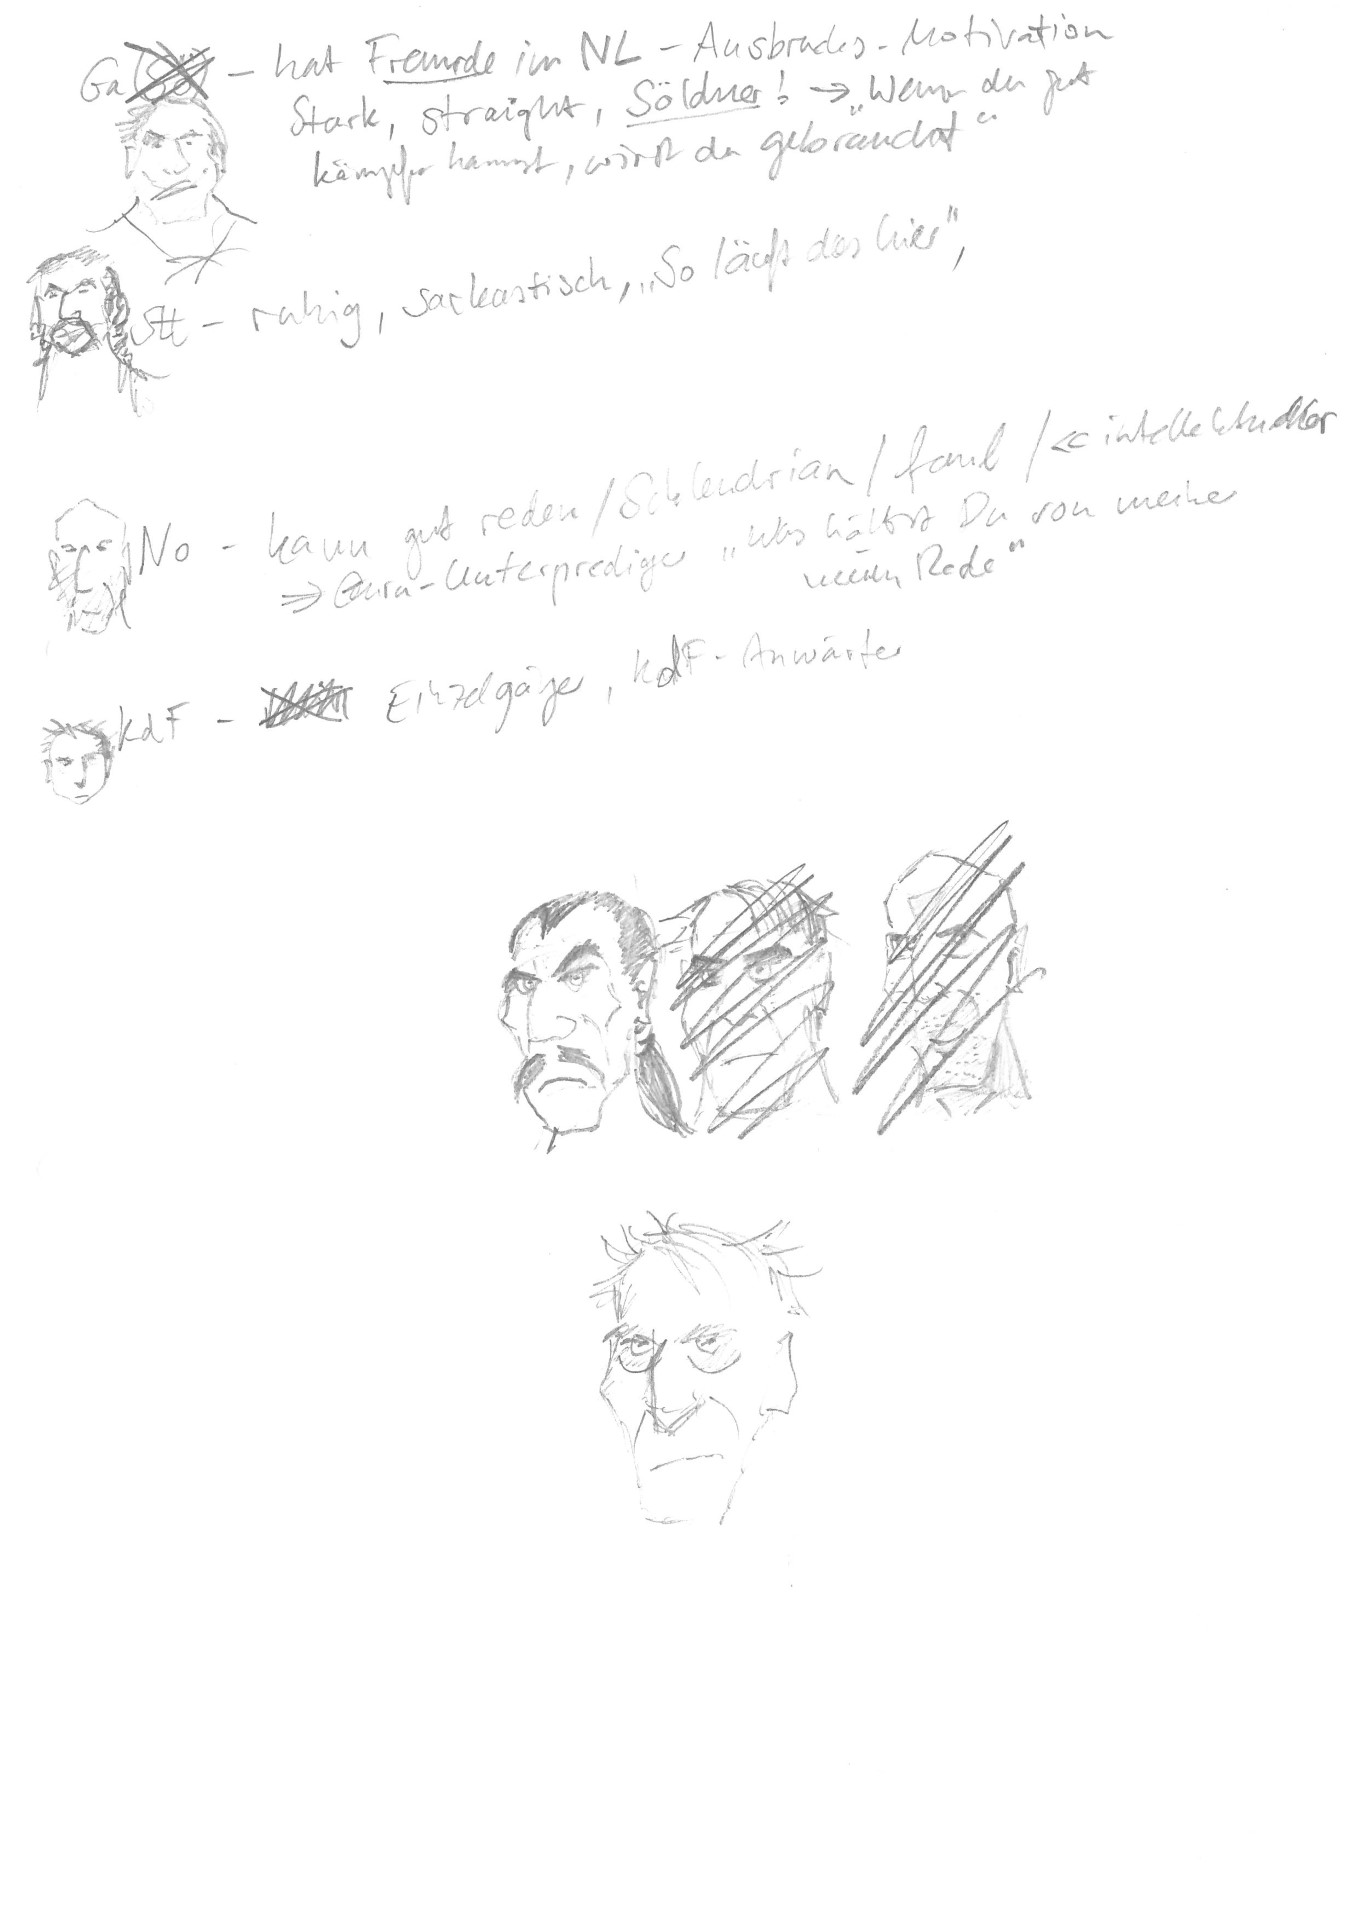 Ga - hat Freunde im NL - Ausbruchs-Motivation
Stark, straight, Söldner! → „Wenn du gut
kämpfen kannst, wirst du gebraucht“
Stt - ruhig, sarkastisch, „So läuft das hier“,
No - kann gut reden / Schlendrian / faul / << intellektueller
⇒ Guru-Unterprediger „Was hältst Du von meiner
Rede“
KdF - Einzelgänger, KdF-Anwärter